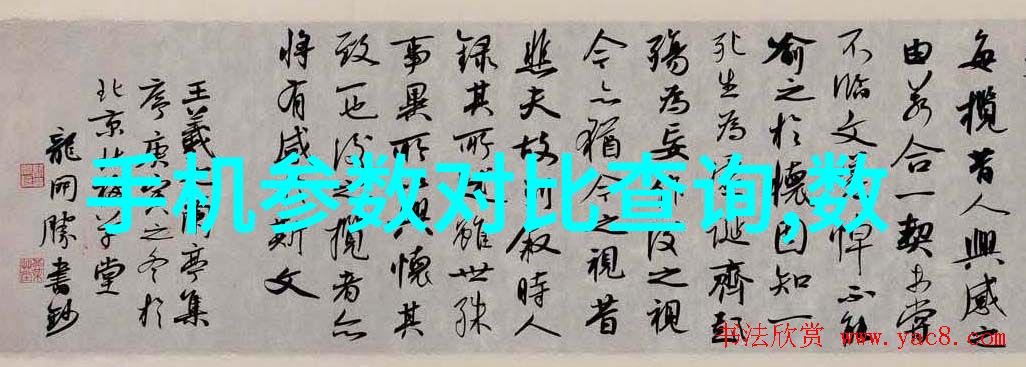 每攬昔人興感之
由若合一契未嘗
不臨文悼不能
喻之於懷固知一
死生為誕齊彭
殤為妄作後之視
今亦猶今之視昔
悲夫故列敘時人
錄其所雖世殊
事異所以興懷其
致一也後之攬者亦
將有感斯文
王羲之蘭亭集
序庚寅之冬於
北京草堂
龍開勝書鈔
手机参数对比查询,数
书法欣赏 www.yac8.com